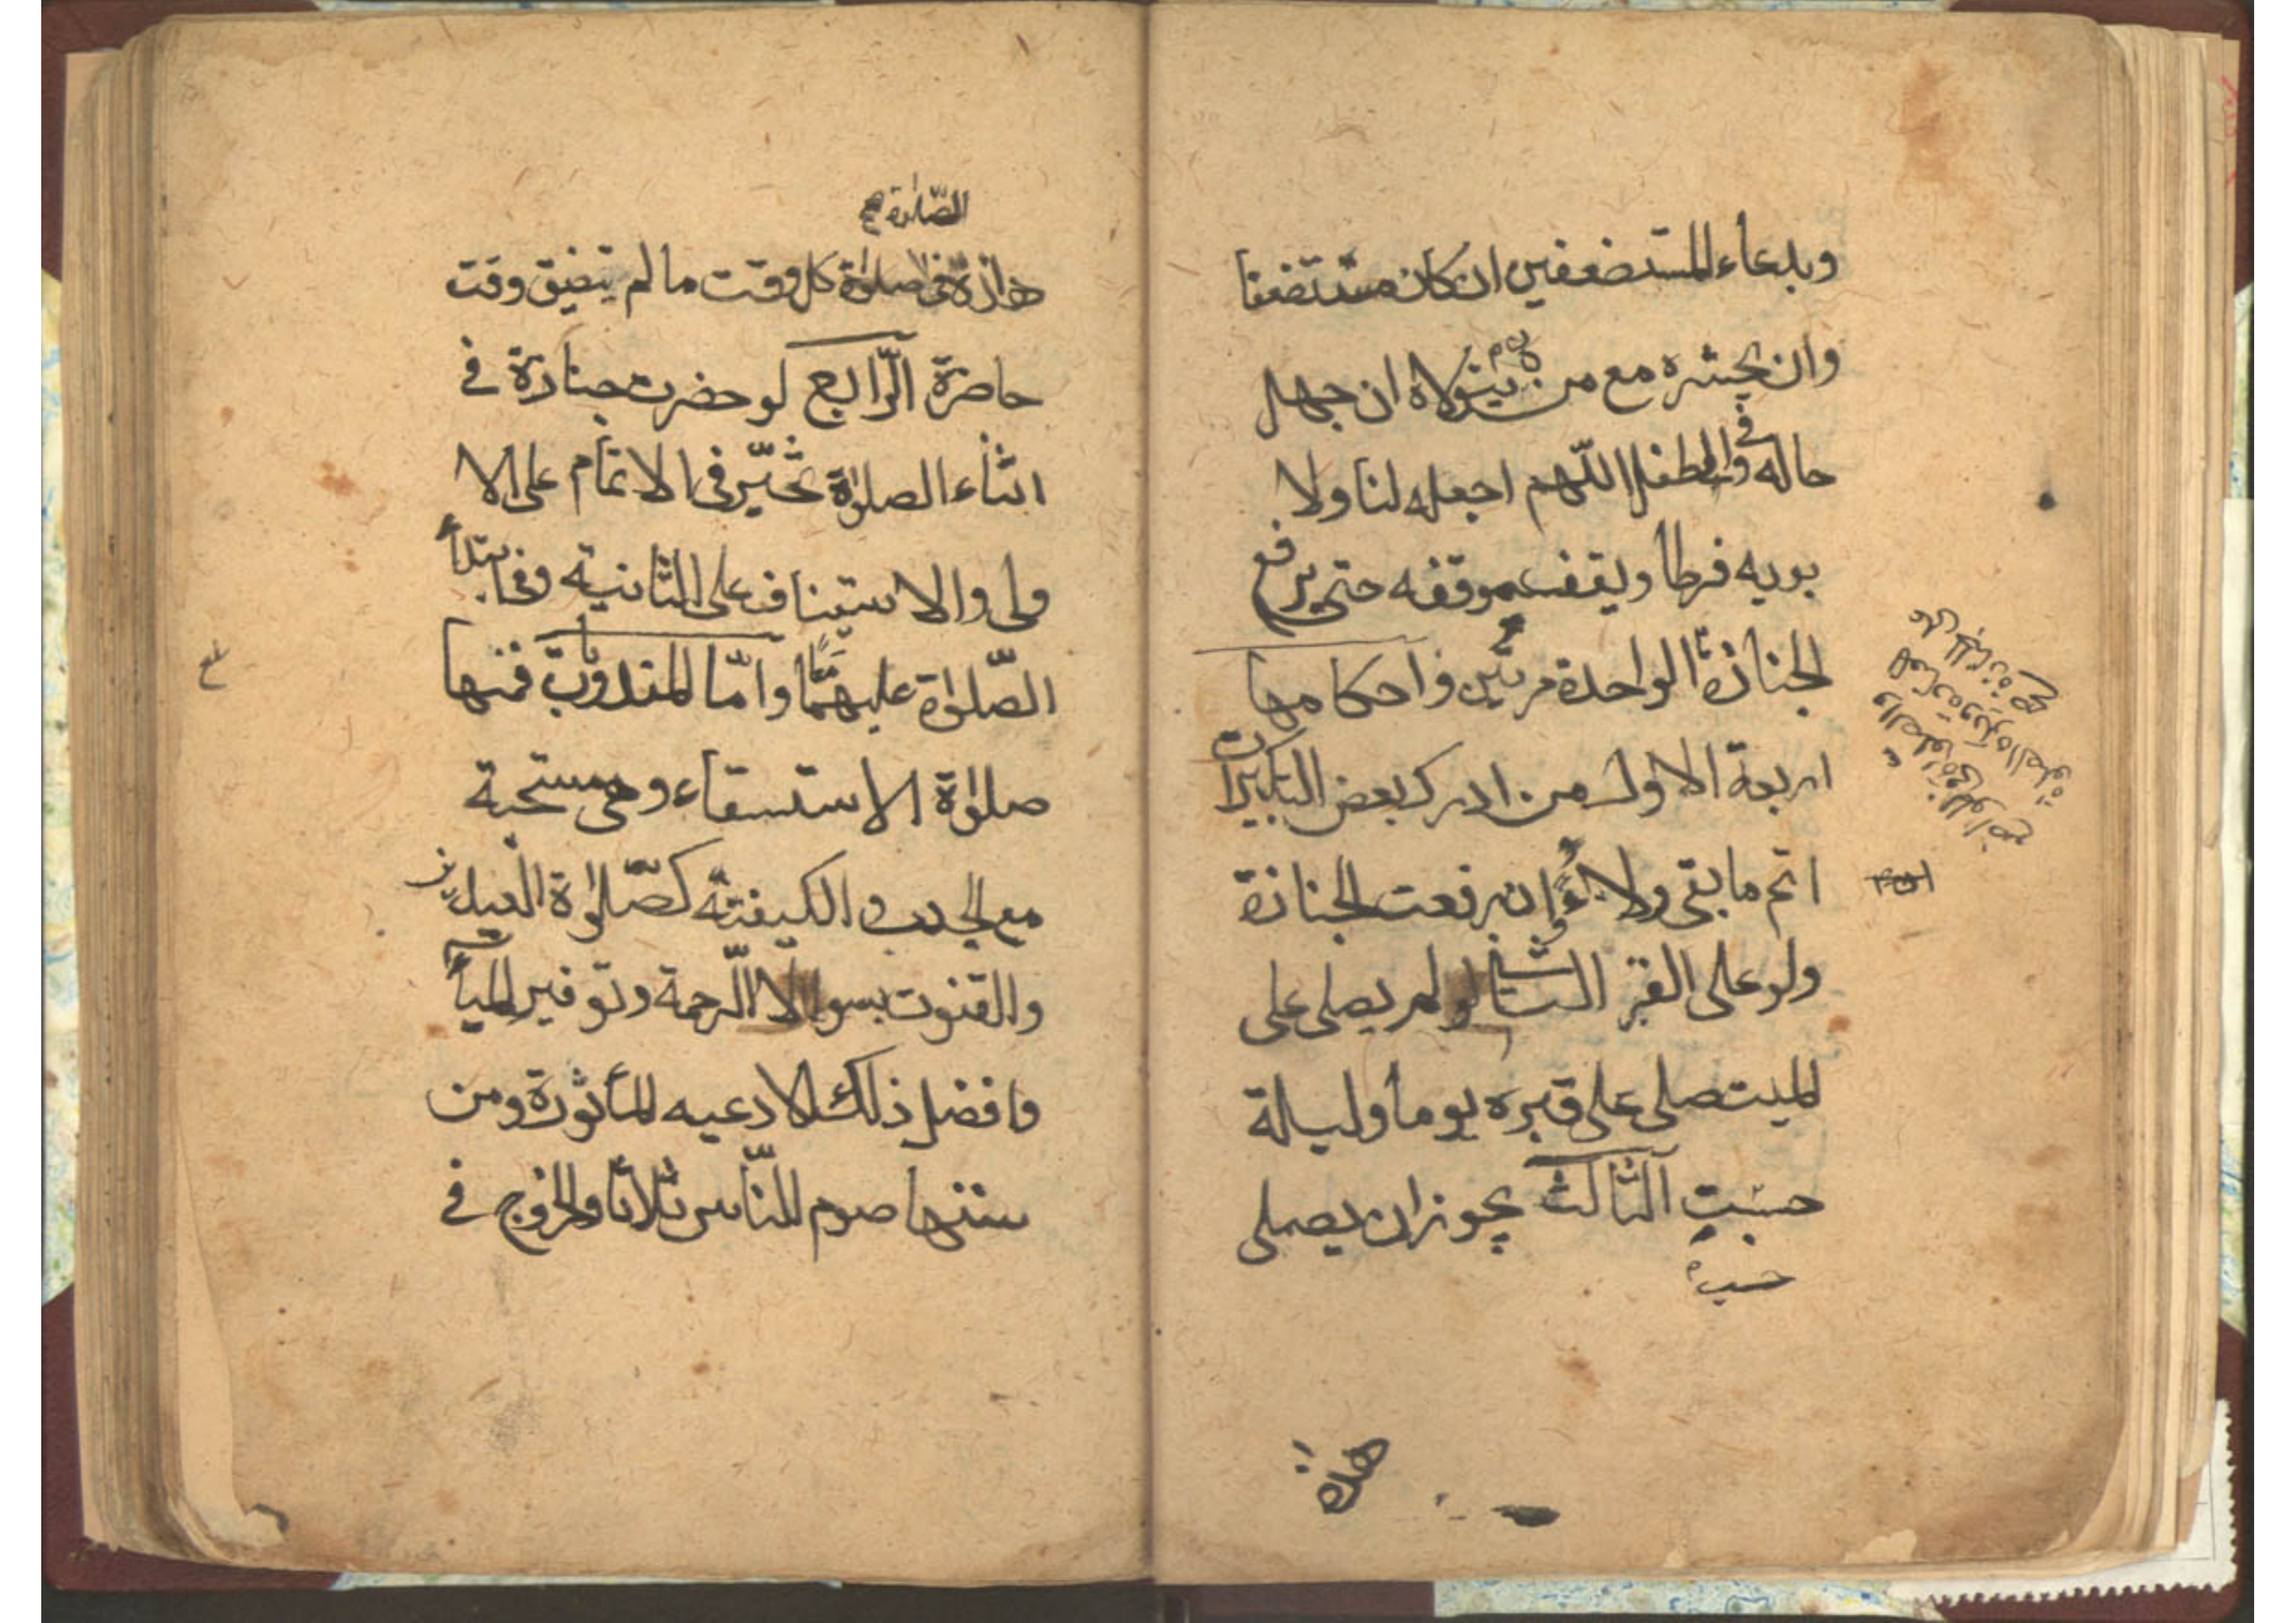 وبدعاء المستضعفين ان كان مستضعفا
وان يحشره مع من يتولاه ان جهل
حاله وفي الطفل اللهم اجعله لنا ولا
بويه فرطا ويقف موقفه حتى يرفع
الجنازة الواحدة مرتين واحكامها
اربعة الاول من ادرك بعض التكبيرات
اتم ما بقى ولاءً وان رفعت الجنازة
ولو على القبر الثانى لو لم يصلى على
الميت صلى على قبره يوما وليلة
حسب الثالث يجوز ان يصلى
حسب
هذه
الصّلوة
هذه فى صلوة كل وقت ما لم يتضيق وقت
حاضرة الرّابع لو حضرت جنازة فى
اثناء الصلوة تخيّر فى الاتمام على الا
ولى والاستيناف على الثّانية وفى ابتدأ
الصّلوة عليهما وامّا المندوبة فمنها
صلوة الاستسقاء وهى مستحبة
مع الجدب والكيفيّة كصّلوة العيدين
والقنوت بسوال الرّحمة وتوفير المياه
وافضل ذلك الادعيه المأثورة ومن
سننها صوم النّاس ثلاثا والخروج فى